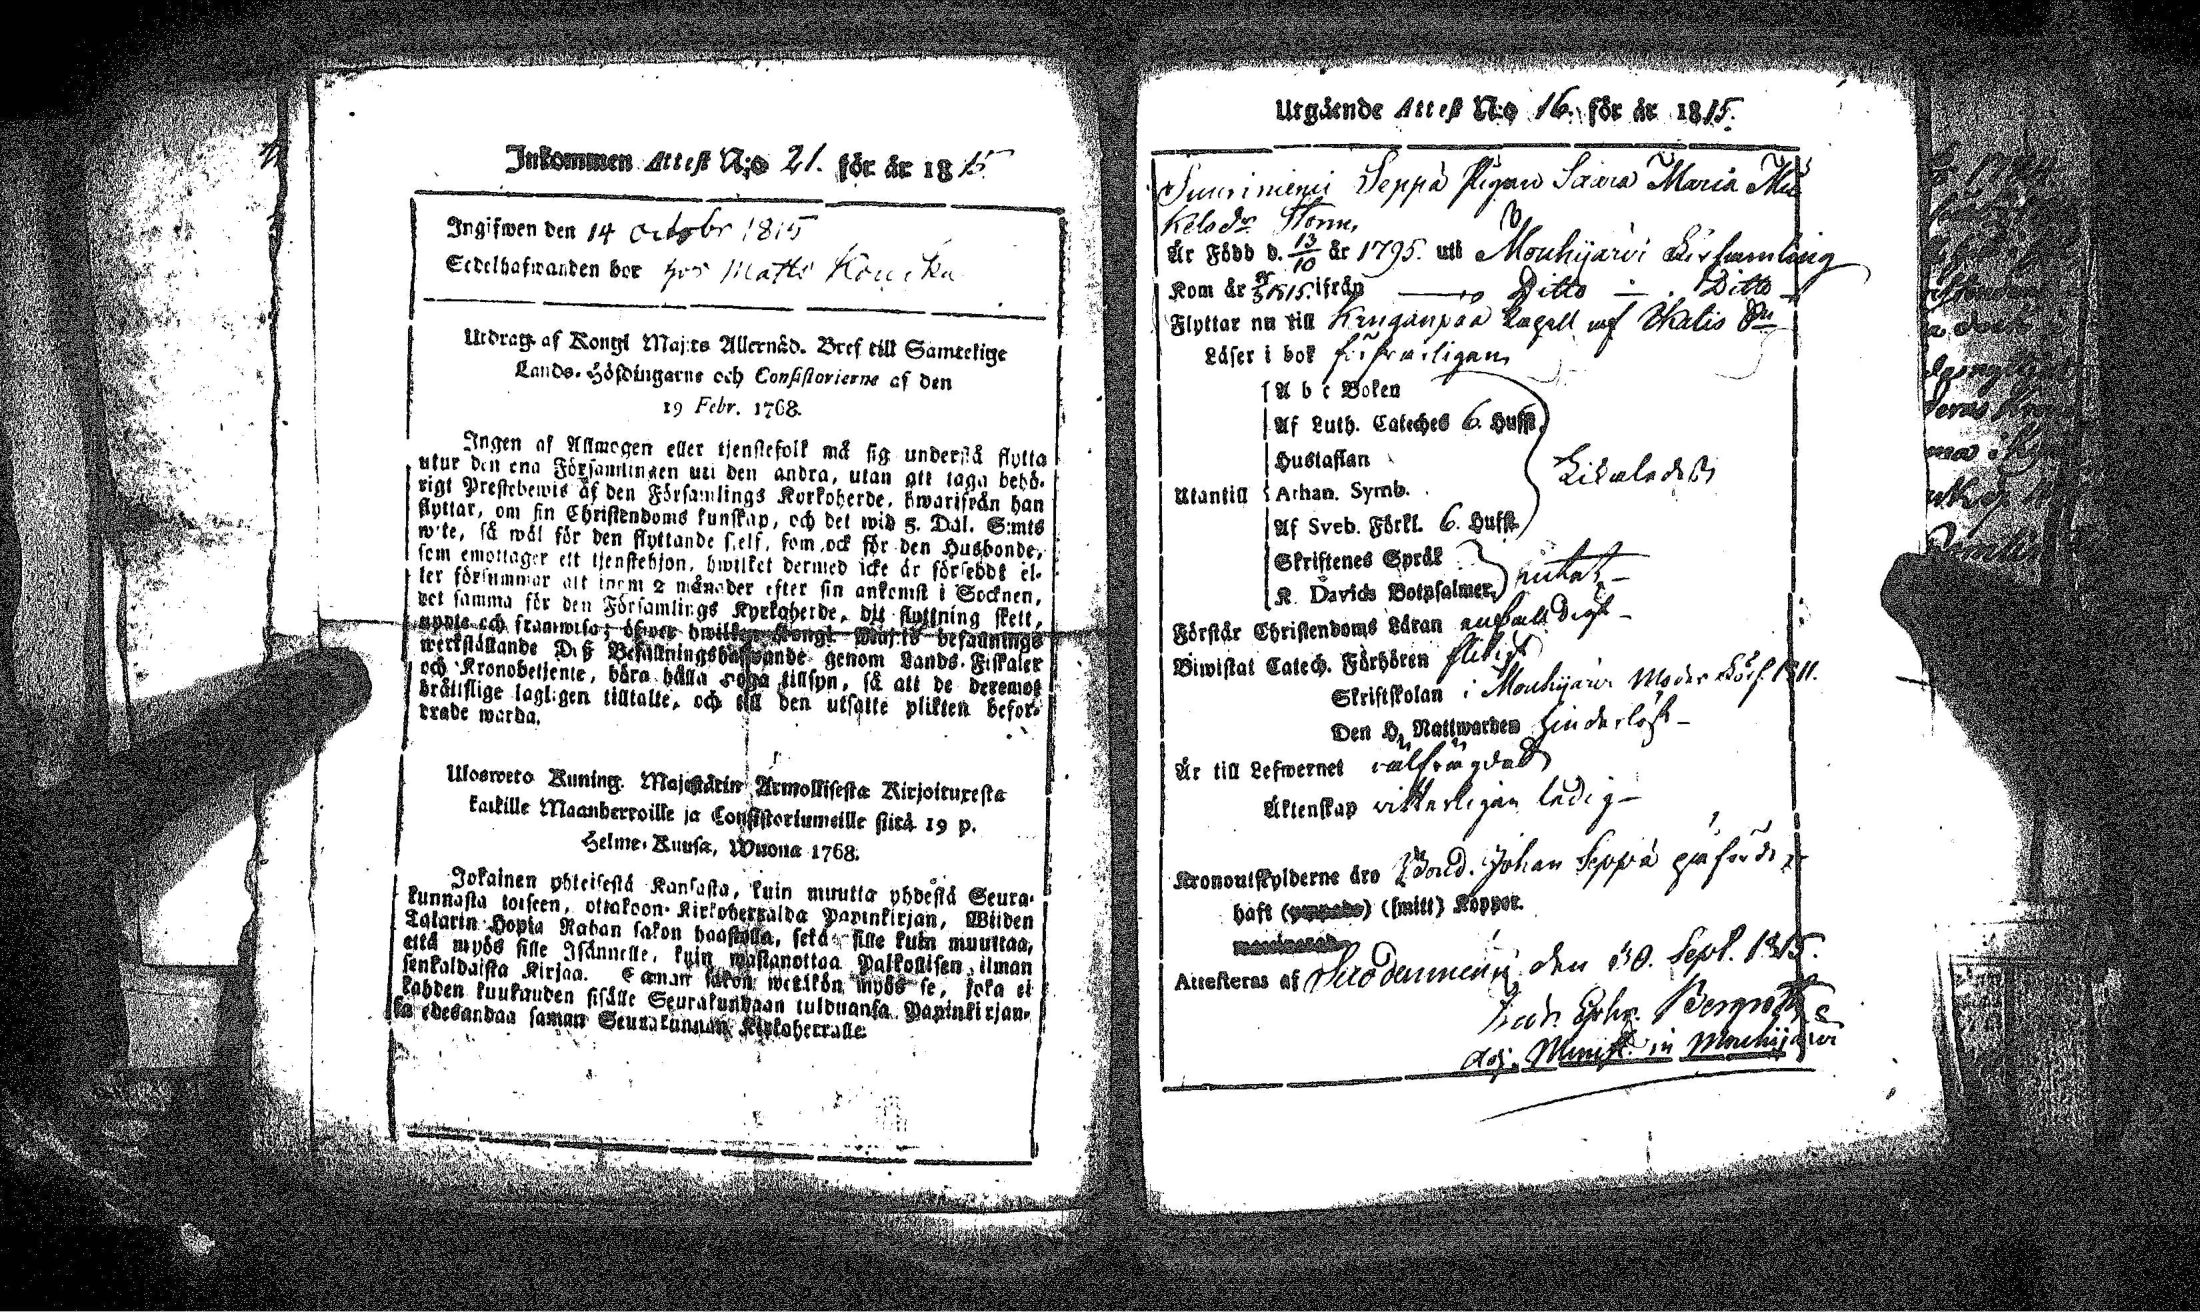 Inkommen Attest N:o 21. för år 1815
Ingifwen den 14 octobr 1815
Sedelhafwanden bor hos Matts
Utdrag af Kongl Maj:ts Allernåd. Bref till Samtelige
Lands-Höfdingarne och Consistorierne af den
19 Febr. 1768.
Ingen af Allmogen eller tjenstefolk må sig understå flytta
utur den ena Församlingen uti den andra, utan att taga behö-
rigt Prestebewis af den Församlings Kyrkoherde, hwarifrån han
flyttar, om sin Christendoms kunskap, och det wid 5. Dal. S:mts
wite, så wäl för den flyttande self, som ock för den Husbonde,
som emottager ett tjenstehjon, hwilket dermed icke är försedt el-
ler försummar att inom 2 månader efter sin ankomst i Socknen,
det samma för den Församlings Kyrkoherde, dit flyttning skett,
uppte och framwisa; öfwer hwilken Kongl Maj:ts befallnings
werkställande Deß Befallningshafwande genom Lands-Fiskaler
och Kronobetjente, böra hålla noga tillsyn, så att de deremot
bråttslige lagligen tilltalte, och till den utsatte plikten befor-
drade warda.
Ulosweto Kuning. Majestätin Armollisesta Kirjoituxesta
kaikille Maanherroille ja Consistoriumeille siitä 19 p.
Helme-Kuusa, Wuona 1768.
Jokainen yhteisestä Kansasta, kuin muutta yhdestä Seura-
kunnasta toiseen, ottakoon Kirkoherralda Papinkirjan, Wiiden
Talarin Hopia Rahan sakon haastolla, sekä sille kuin muuttaa,
että myös sille Isännelle, kuin wastanottaa Palkollisen ilman
senkaldaista Kirjaa. Saman sakon wetäkön myös se, joka ei
kahden kuukauden sisälle Seurakundaan tulduansa Papinkirjan-
sa edesandaa saman Seurakunnan Kirkoherralle
Utgående Attest N:o 16. för år 1815.
Suuriniemi Seppä Pigan Saara Maria Mi
kelsdr Storm,
Är Född d. 13/10 år 1795. uti Mouhijärvi Församling
Kom år 1815. ifrån — Ditto — Ditto
Flyttar nu till Kapell af Ikalis
Läser i bok försvarligen
A b c Boken
Af Luth. Cateches 6. Hufst.
Hustaflan
Utantill Athan. Symb.
Af Sveb. Förkl. 6. Hufst.
Skriftenes Språk
K. Davids Botpsalmer
Förstår Christendoms Läran enfaldigt —
Biwistat Catech. Förhören flitigt
Skriftskolan i Mouhijärvi Moder 1811.
Den H. Nattwarden hinderlöst —
Är till Lefwernet välfrägdad
Äktenskap vitterligen ledig —
Kronoutskylderne äro Bond. Johan Seppä påförde
haft (smitt) Koppor.
Attesteras af Suodenniemi den 30. Sept. 1815.
Bergroth
Adj. Minist. in Mouhijärvi